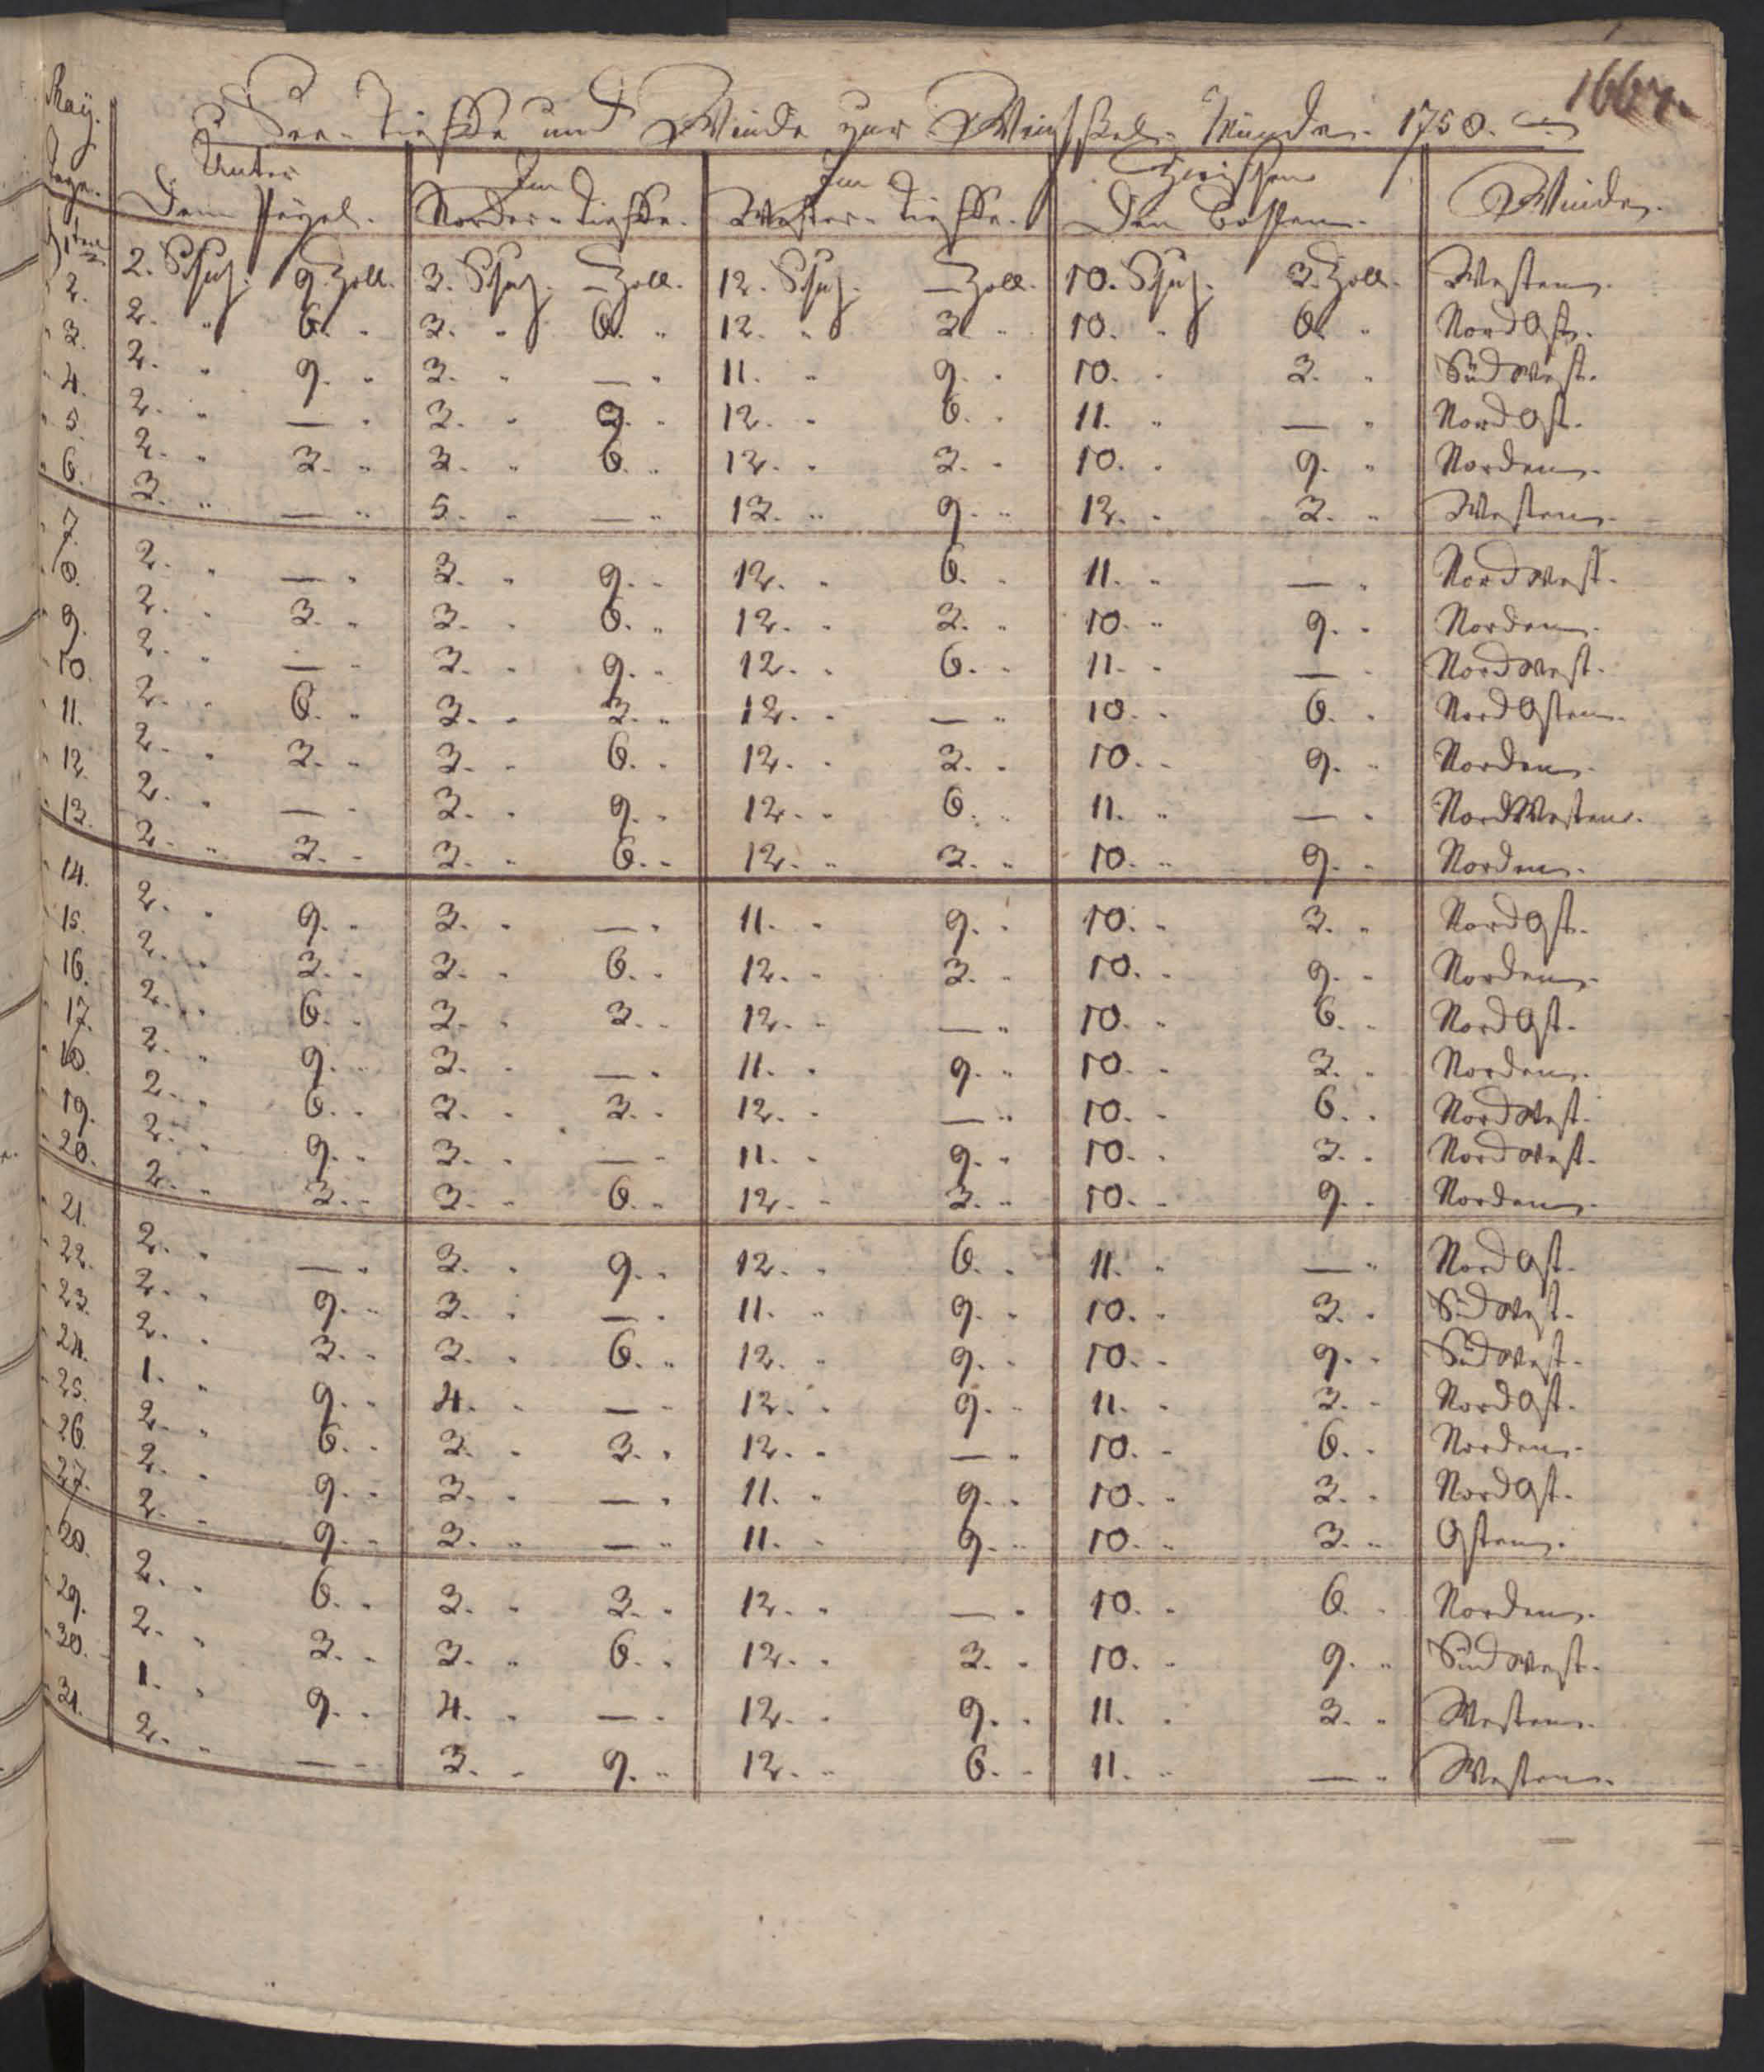 1667.
See-Tieffe und Winde zur Weichsel-Münde. 1750.
May. Tage. Unter Dem Pegel. Im Norder-Tieffe. Im Wester-Tieffe. Zwischen Den Winde.
1ten 2. Schuh. 9. Zoll. 3. Schuh. — Zoll. 12. Schuh. — Zoll. 10. Schuh. 3. Zoll. Westen.
" 2. 2. " 6. " 3. " 6. " 12. " 3. " 10. " 6. " Nord Ost.
" 3. 2. " 9. " 3. " — " 11. " 9. " 10. " 3. " Süd West.
" 4. 2. " — " 3. " 9. " 12. " 6. " 11. " — " Nord Ost.
" 5. 2. " 3. " 3. " 6. " 12. " 3. " 10. " 9. " Norden.
" 6. 3. " — " 5. " — " 13. " 9. " 12. " 3. " Westen.
" 7. 2. " — " 3. " 9. " 12. " 6. " 11. " — " Nord West.
" 8. 2. " 3. " 3. " 6. " 12. " 3. " 10. " 9. " Norden.
" 9. 2. " — " 3. " 9. " 12. " 6. " 11. " — " Nord West.
" 10. 2. " 6. " 3. " 3. " 12. " — " 10. " 6. " Nord Osten.
" 11. 2. " 3. " 3. " 6. " 12. " 3. " 10. " 9. " Norden.
" 12. 2. " — " 3. " 9. " 12. " 6. " 11. " — " Nord Westen.
" 13. 2. " 3. " 3. " 6. " 12. " 3. " 10. " 9. " Norden.
" 14. 2. " 9. " 3. " — " 11. " 9. " 10. " 3. " Nord Ost.
" 15. 2. " 3. " 3. " 6. " 12. " 3. " 10. " 9. " Norden.
" 16. 2. " 6. " 3. " 3. " 12. " — " 10. " 6. " Nord Ost.
" 17. 2. " 9. " 3. " — " 11. " 9. " 10. " 3. " Norden.
" 18. 2. " 6. " 3. " 3. " 12. " — " 10. " 6. " Nord West.
" 19. 2. " 9. " 3. " — " 11. " 9. " 10. " 3. " Nord West.
" 20. 2. " 3. " 3. " 6. " 12. " 3. " 10. " 9. " Norden.
" 21. 2. " — " 3. " 9. " 12. " 6. " 11. " — " Nord Ost.
" 22. 2. " 9. " 3. " — " 11. " 9. " 10. " 3. " Süd West.
" 23. 2. " 3. " 3. " 6. " 12. " 9. " 10. " 9. " Süd West.
" 24. 1. " 9. " 4. " — " 12. " 9. " 11. " 3. " Nord Ost.
" 25. 2. " 6. " 3. " 3. " 12. " — " 10. " 6. " Norden.
" 26. 2. " 9. " 3. " — " 11. " 9. " 10. " 3. " Nord Ost.
" 27. 2. " 9. " 3. " — " 11. " 9. " 10. " 3. " Osten.
" 28. 2. " 6. " 3. " 3. " 12. " — " 10. " 6. " Norden.
" 29. 2. " 3. " 3. " 6. " 12. " 3. " 10. " 9. " Süd West.
" 30. 1. " 9. " 4. " — " 12. " 9. " 11. " 3. " Westen.
" 31. 2. " — " 3. " 9. " 12. " 6. " 11. " — " Westen.